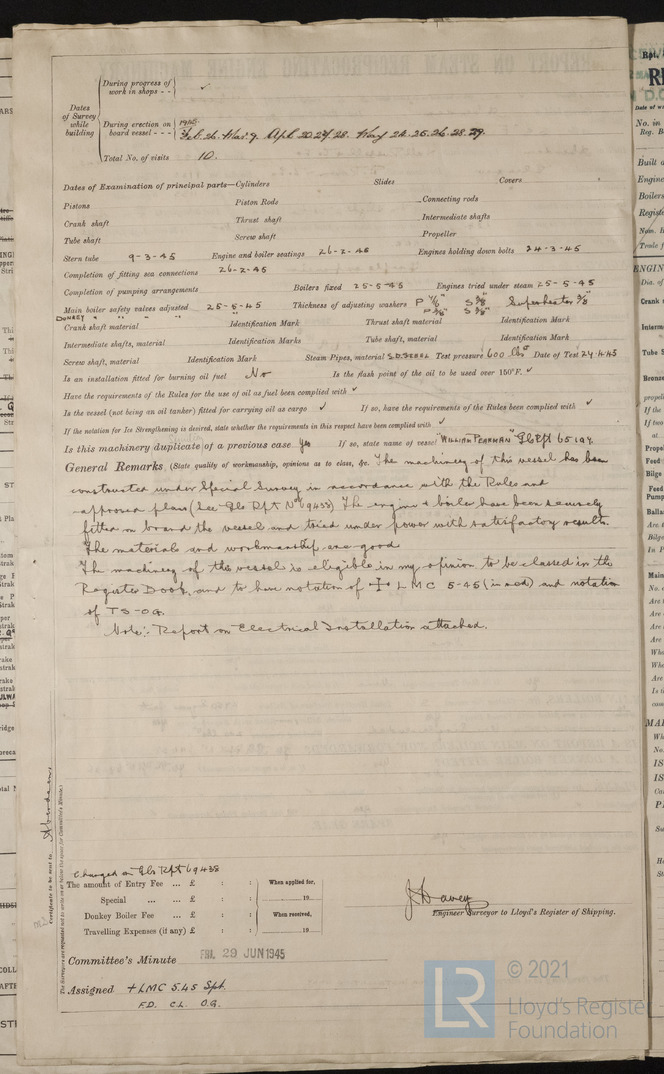 During progress of work in shops - - ✓
Dates of Survey while building
During erection on board vessel - - - 1945. Feb. 26. Mar. 9. Apl. 20. 24. 28. May 24. 25. 26. 28. 29.
Total No. of visits 10.
Dates of Examination of principal parts—Cylinders Slides Covers
Pistons Piston Rods Connecting rods
Crank shaft Thrust shaft Intermediate shafts
Tube shaft Screw shaft Propeller
Stern tube 9-3-45 Engine and boiler seatings 26-2-45 Engines holding down bolts 24-3-45
Completion of fitting sea connections 26-2-45
Completion of pumping arrangements Boilers fixed 25-5-45 Engines tried under steam 25-5-45
Main boiler safety valves adjusted 25-5-45 Thickness of adjusting washers P S 3/8" Superheater 3/8"
DONKEY " " " " P 3/8" S 3/8"
Crank shaft material Identification Mark Thrust shaft material Identification Mark
Intermediate shafts, material Identification Marks Tube shaft, material Identification Mark
Screw shaft, material Identification Mark Steam Pipes, material S.D. STEEL Test pressure 600 lbs Date of Test 24.4.45
Is an installation fitted for burning oil fuel No Is the flash point of the oil to be used over 150°F. ✓
Have the requirements of the Rules for the use of oil as fuel been complied with ✓
Is the vessel (not being an oil tanker) fitted for carrying oil as cargo ✓ If so, have the requirements of the Rules been complied with ✓
If the notation for Ice Strengthening is desired, state whether the requirements in this respect have been complied with ✓
Is this machinery duplicate of a previous case Yes If so, state name of vessel "WILLIAM PEARMAN" Gls Rpt 65194
General Remarks (State quality of workmanship, opinions as to class, &c. The machinery of this vessel has been
constructed under Special Survey in accordance with the Rules and
approved plans (See Gls Rpt No 69433) The engine & boiler have been securely
fitted on board the vessel and tried under power with satisfactory results.
The materials and workmanship are good
The machinery of the vessel is elegible in my opinion to be classed in the
Register Book, and to have notation of + LMC 5-45 (in red) and notation
of TS-OG.
Note:- Report on Electrical Installation attached.
Certificate to be sent to Aberdeen
The Surveyors are requested not to write on or below the space for Committee's Minute.
Charged on Gls Rpt 69433
The amount of Entry Fee ... £ : : When applied for,
Special ... ... £ : : 19
Donkey Boiler Fee ... £ : : When received,
Travelling Expenses (if any) £ : : 19
J Davey
Engineer Surveyor to Lloyd's Register of Shipping.
Committee's Minute FRI. 29 JUN 1945
Assigned + LMC 5.45 Spt.
F.D. C.L. O.G.
LR
© 2021
Lloyd's Register
Foundation